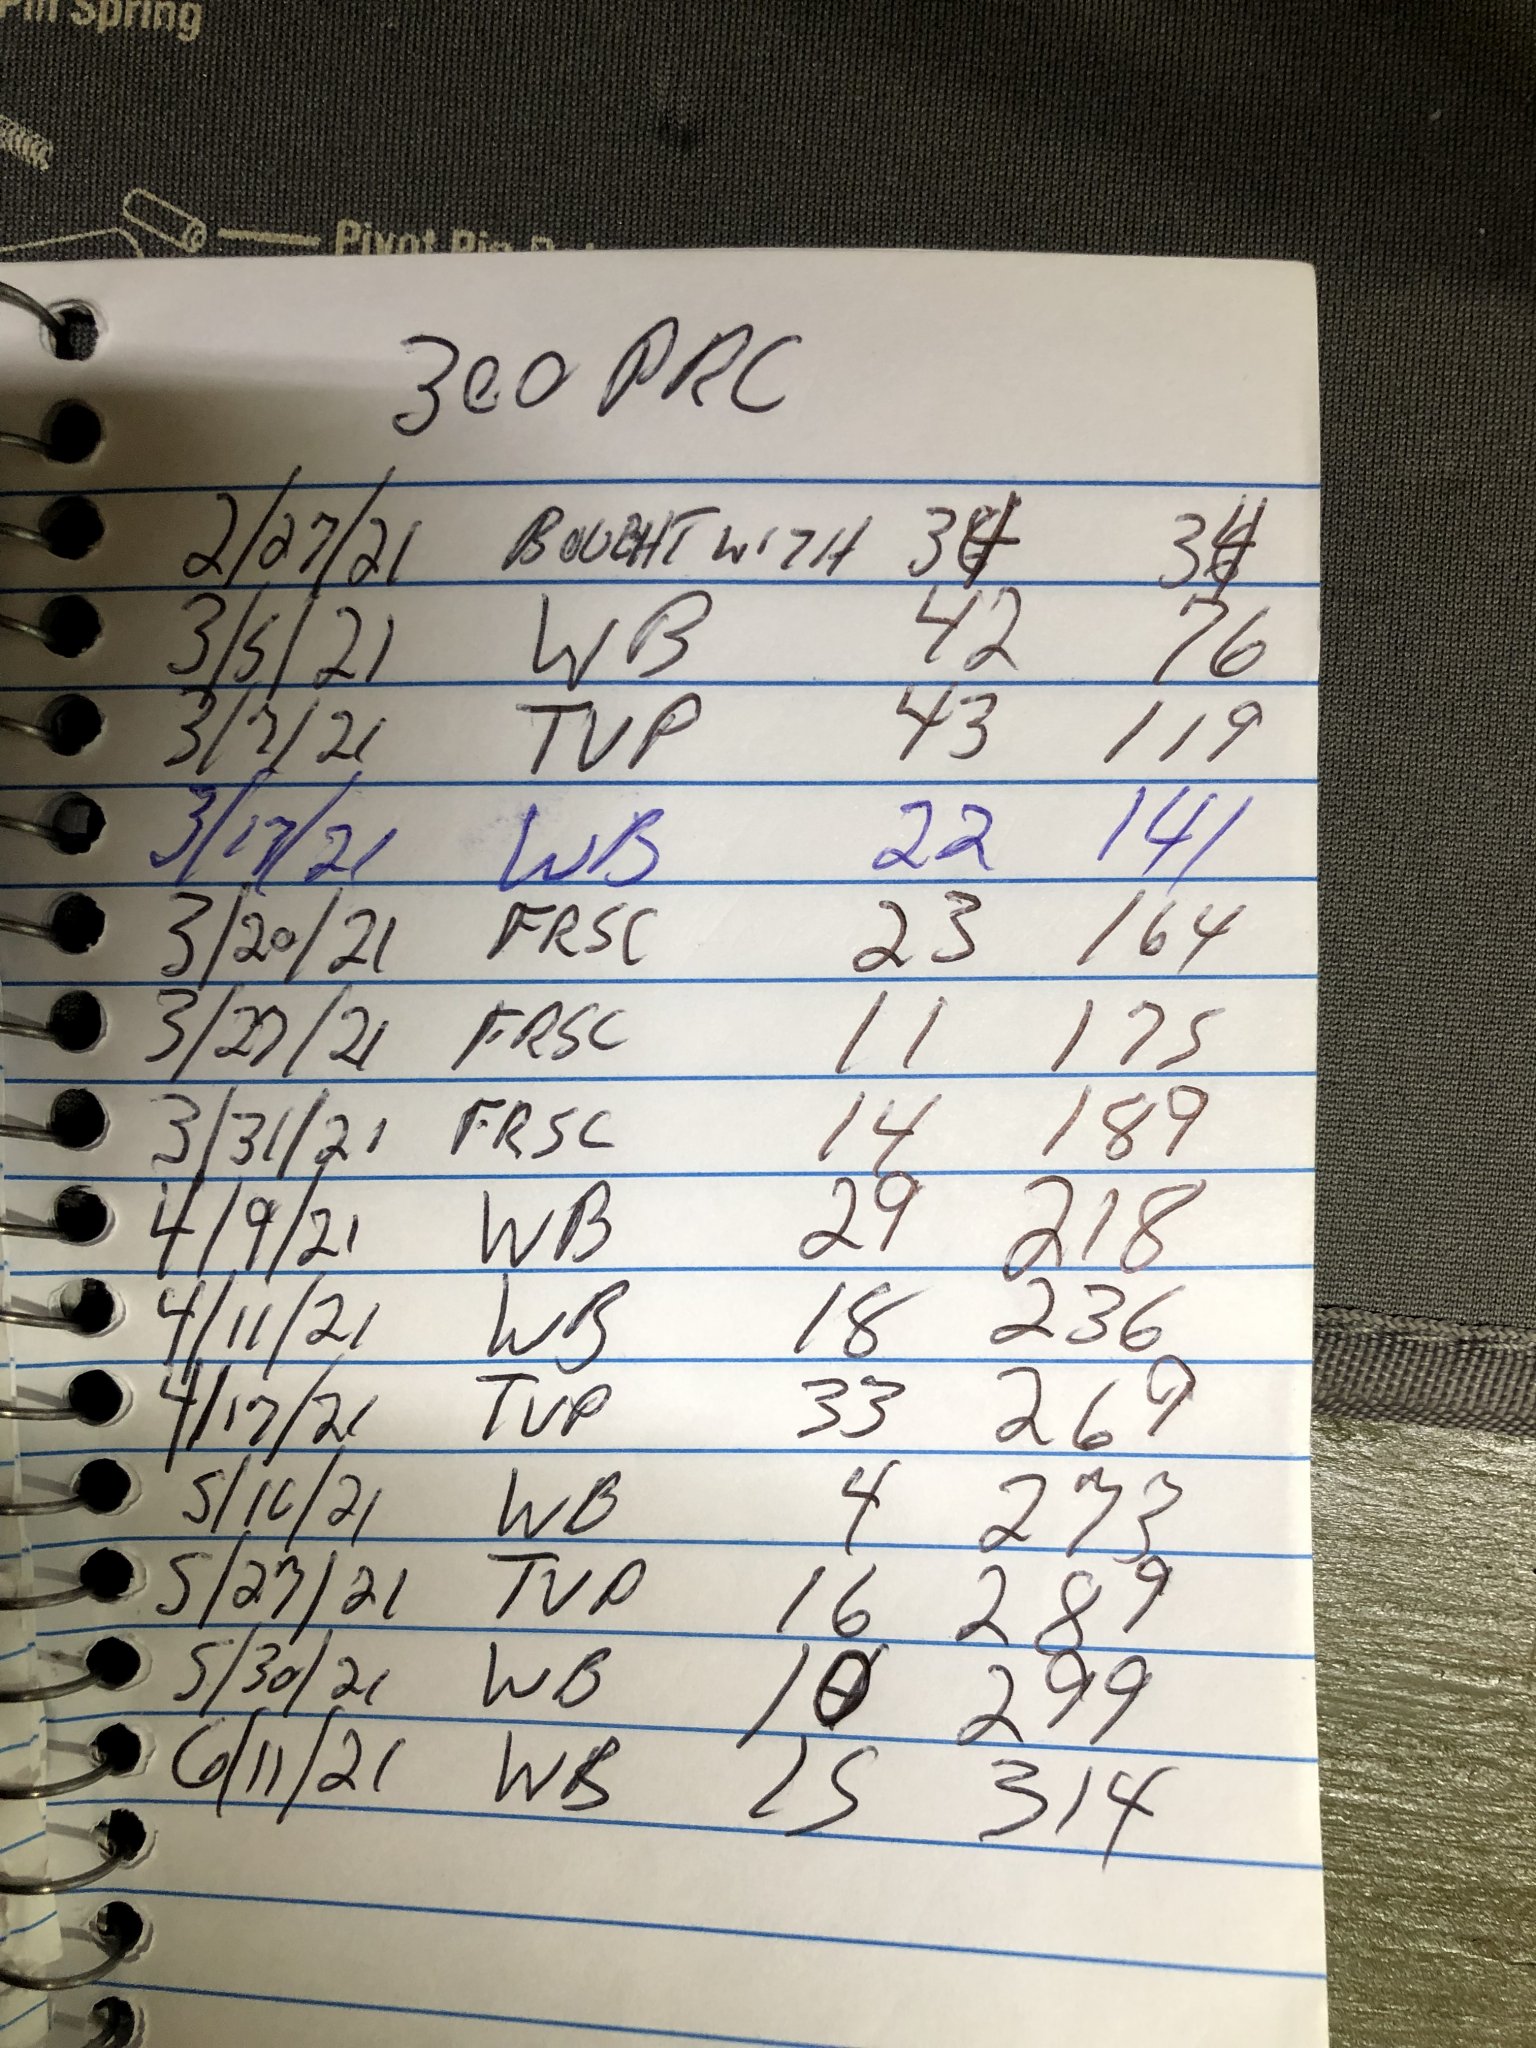 Pin Spring
Pivot Pin
300 PRC
2/27/21 BOUGHT WITH 34 34
3/5/21 WB 42 76
3/7/21 TVP 43 119
3/17/21 WB 22 141
3/20/21 FRSC 23 164
3/27/21 FRSC 11 175
3/31/21 FRSC 14 189
4/9/21 WB 29 218
4/11/21 WB 18 236
4/17/21 TVP 33 269
5/16/21 WB 4 273
5/27/21 TVP 16 289
5/30/21 WB 10 299
6/11/21 WB 15 314